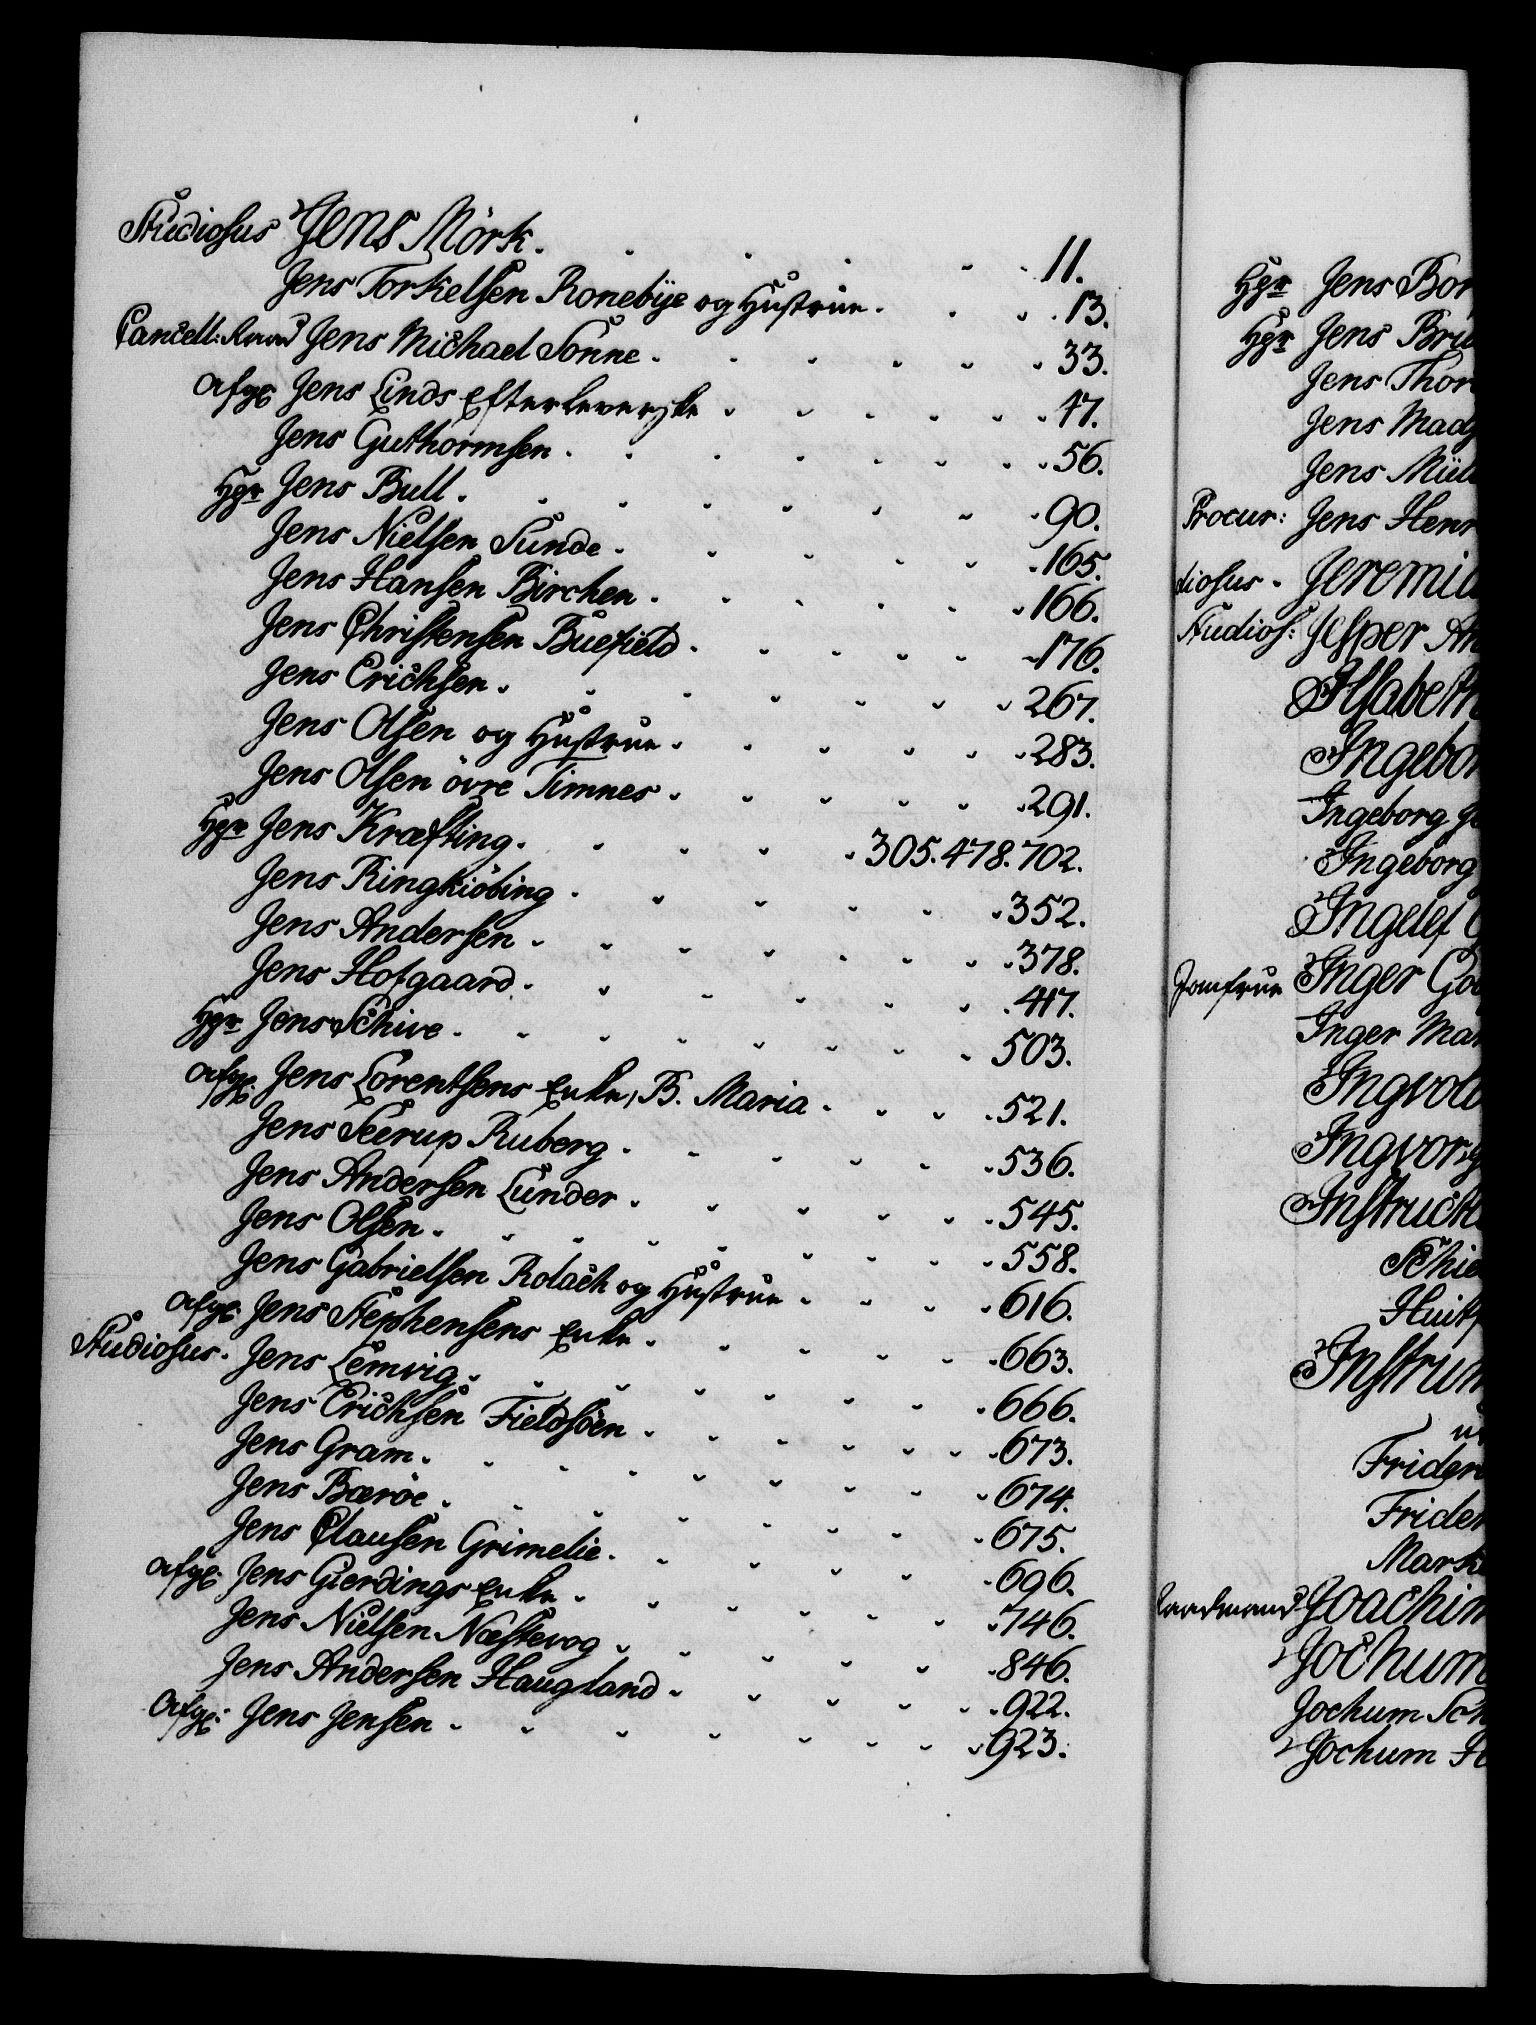 Studiosus Jens Mörk. 11.
Jens Torkelsen Ronebÿe og Hustrue. 13.
Cancell: Raad Jens Michael Sonne. 33.
Afg: Jens Linds Efterleverske 47.
Jens Guthormsen. 56.
Hgr Jens Bull. 90.
Jens Nielsen Sunde. 165.
Jens Hansen Birchen. 166.
Jens Christensen Buefield. 176.
Jens Erichsen. 267.
Jens Olsen og Hustrue. 283.
Jens Olsen övre Timnes. 291.
Hgr Jens Kræfting. 305. 478. 702.
Jens Ringkiöbing. 352.
Jens Andersen. 378.
Jens Hofgaard. 417.
Hgr Jens Schive. 503.
Afg: Jens Lorentsens Enke, B. Maria. 521.
Jens Seerup Ruberg. 536.
Jens Andersen Lunder. 545.
Jens Olsen. 558.
Jens Gabrielsen Rolach og Hustrue 616.
Afg: Jens Stephensens Enke. 663.
Studiosus. Jens Lemvig. 666.
Jens Erichsen Fieldsöen. 673.
Jens Gram. 674.
Jens Bæröe. 675.
Jens Clausen Grimelie. 696.
Afg: Jens Gierdings Enke. 746.
Jens Nielsen Næstevog. 846.
Jens Andersen Haugland. 922.
Afg: Jens Jensen. 923.
Hgr Jens Bor
Hgr Jens Bru
Jens Thor
Jens Mad
Jens Mül
Procur: Jens Henr
diosus. Jeremia
Studios: Jesper An
Ilsabeth
Ingebor
Ingeborg
Ingeborg
Ingelef
Jomfrue Inger Go
Inger Mar
Ingvold
Ingvor
Instruct
Schie
Huitf
Instrum
Frider
Frider
Mark
Raadmand Joachim
Jochum
Jochum Sch
Jochum H